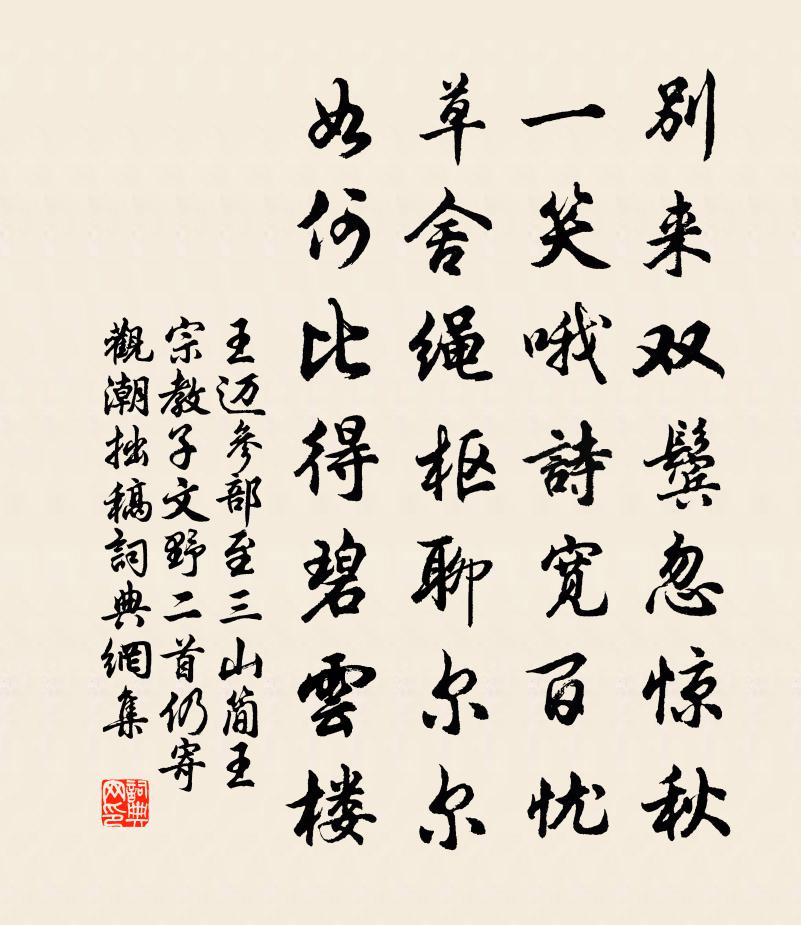 别来双鬓忽惊秋
一笑哦詩宽百忧
草舍绳枢聊尔尔
如何比得碧雲楼
王迈参部至三山简王
宗教子文野二首仍寄
觀潮拙稿詞典網集
詞典
网印